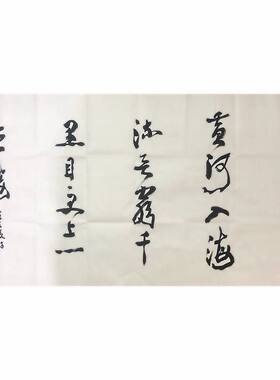 黄河入海
流欲窮千
里目更上一